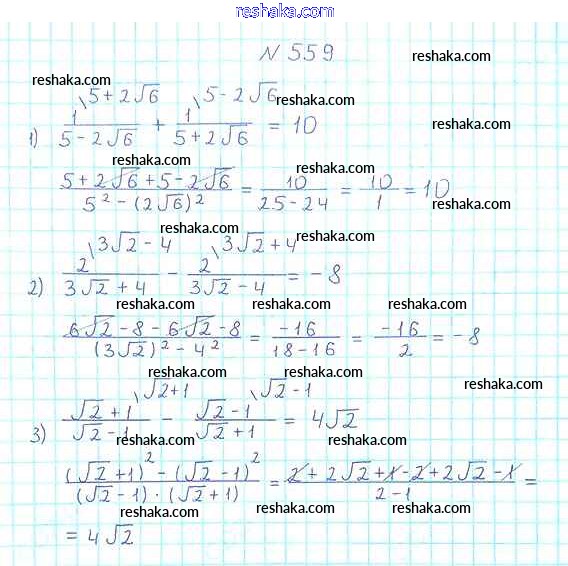 reshaka.com
N 559
reshaka.com
reshaka.com
reshaka.com
1) 1\5+2√6 / (5-2√6) + 1\5-2√6 / (5+2√6) = 10
reshaka.com
reshaka.com
(5+2√6+5-2√6) / (5²-(2√6)²) = 10 / (25-24) = 10/1 = 10
reshaka.com
reshaka.com
2) 2\3√2-4 / (3√2+4) - 2\3√2+4 / (3√2-4) = -8
reshaka.com
reshaka.com
reshaka.com
(6√2-8-6√2-8) / ((3√2)²-4²) = -16 / (18-16) = -16/2 = -8
reshaka.com
reshaka.com
reshaka.com
3) (√2+1)\√2+1 / (√2-1) - (√2-1)\√2-1 / (√2+1) = 4√2
reshaka.com
reshaka.com
((√2+1)²-(√2-1)²) / ((√2-1)·(√2+1)) = (2+2√2+1-2+2√2-1) / (2-1) =
reshaka.com
reshaka.com
= 4√2
reshaka.com